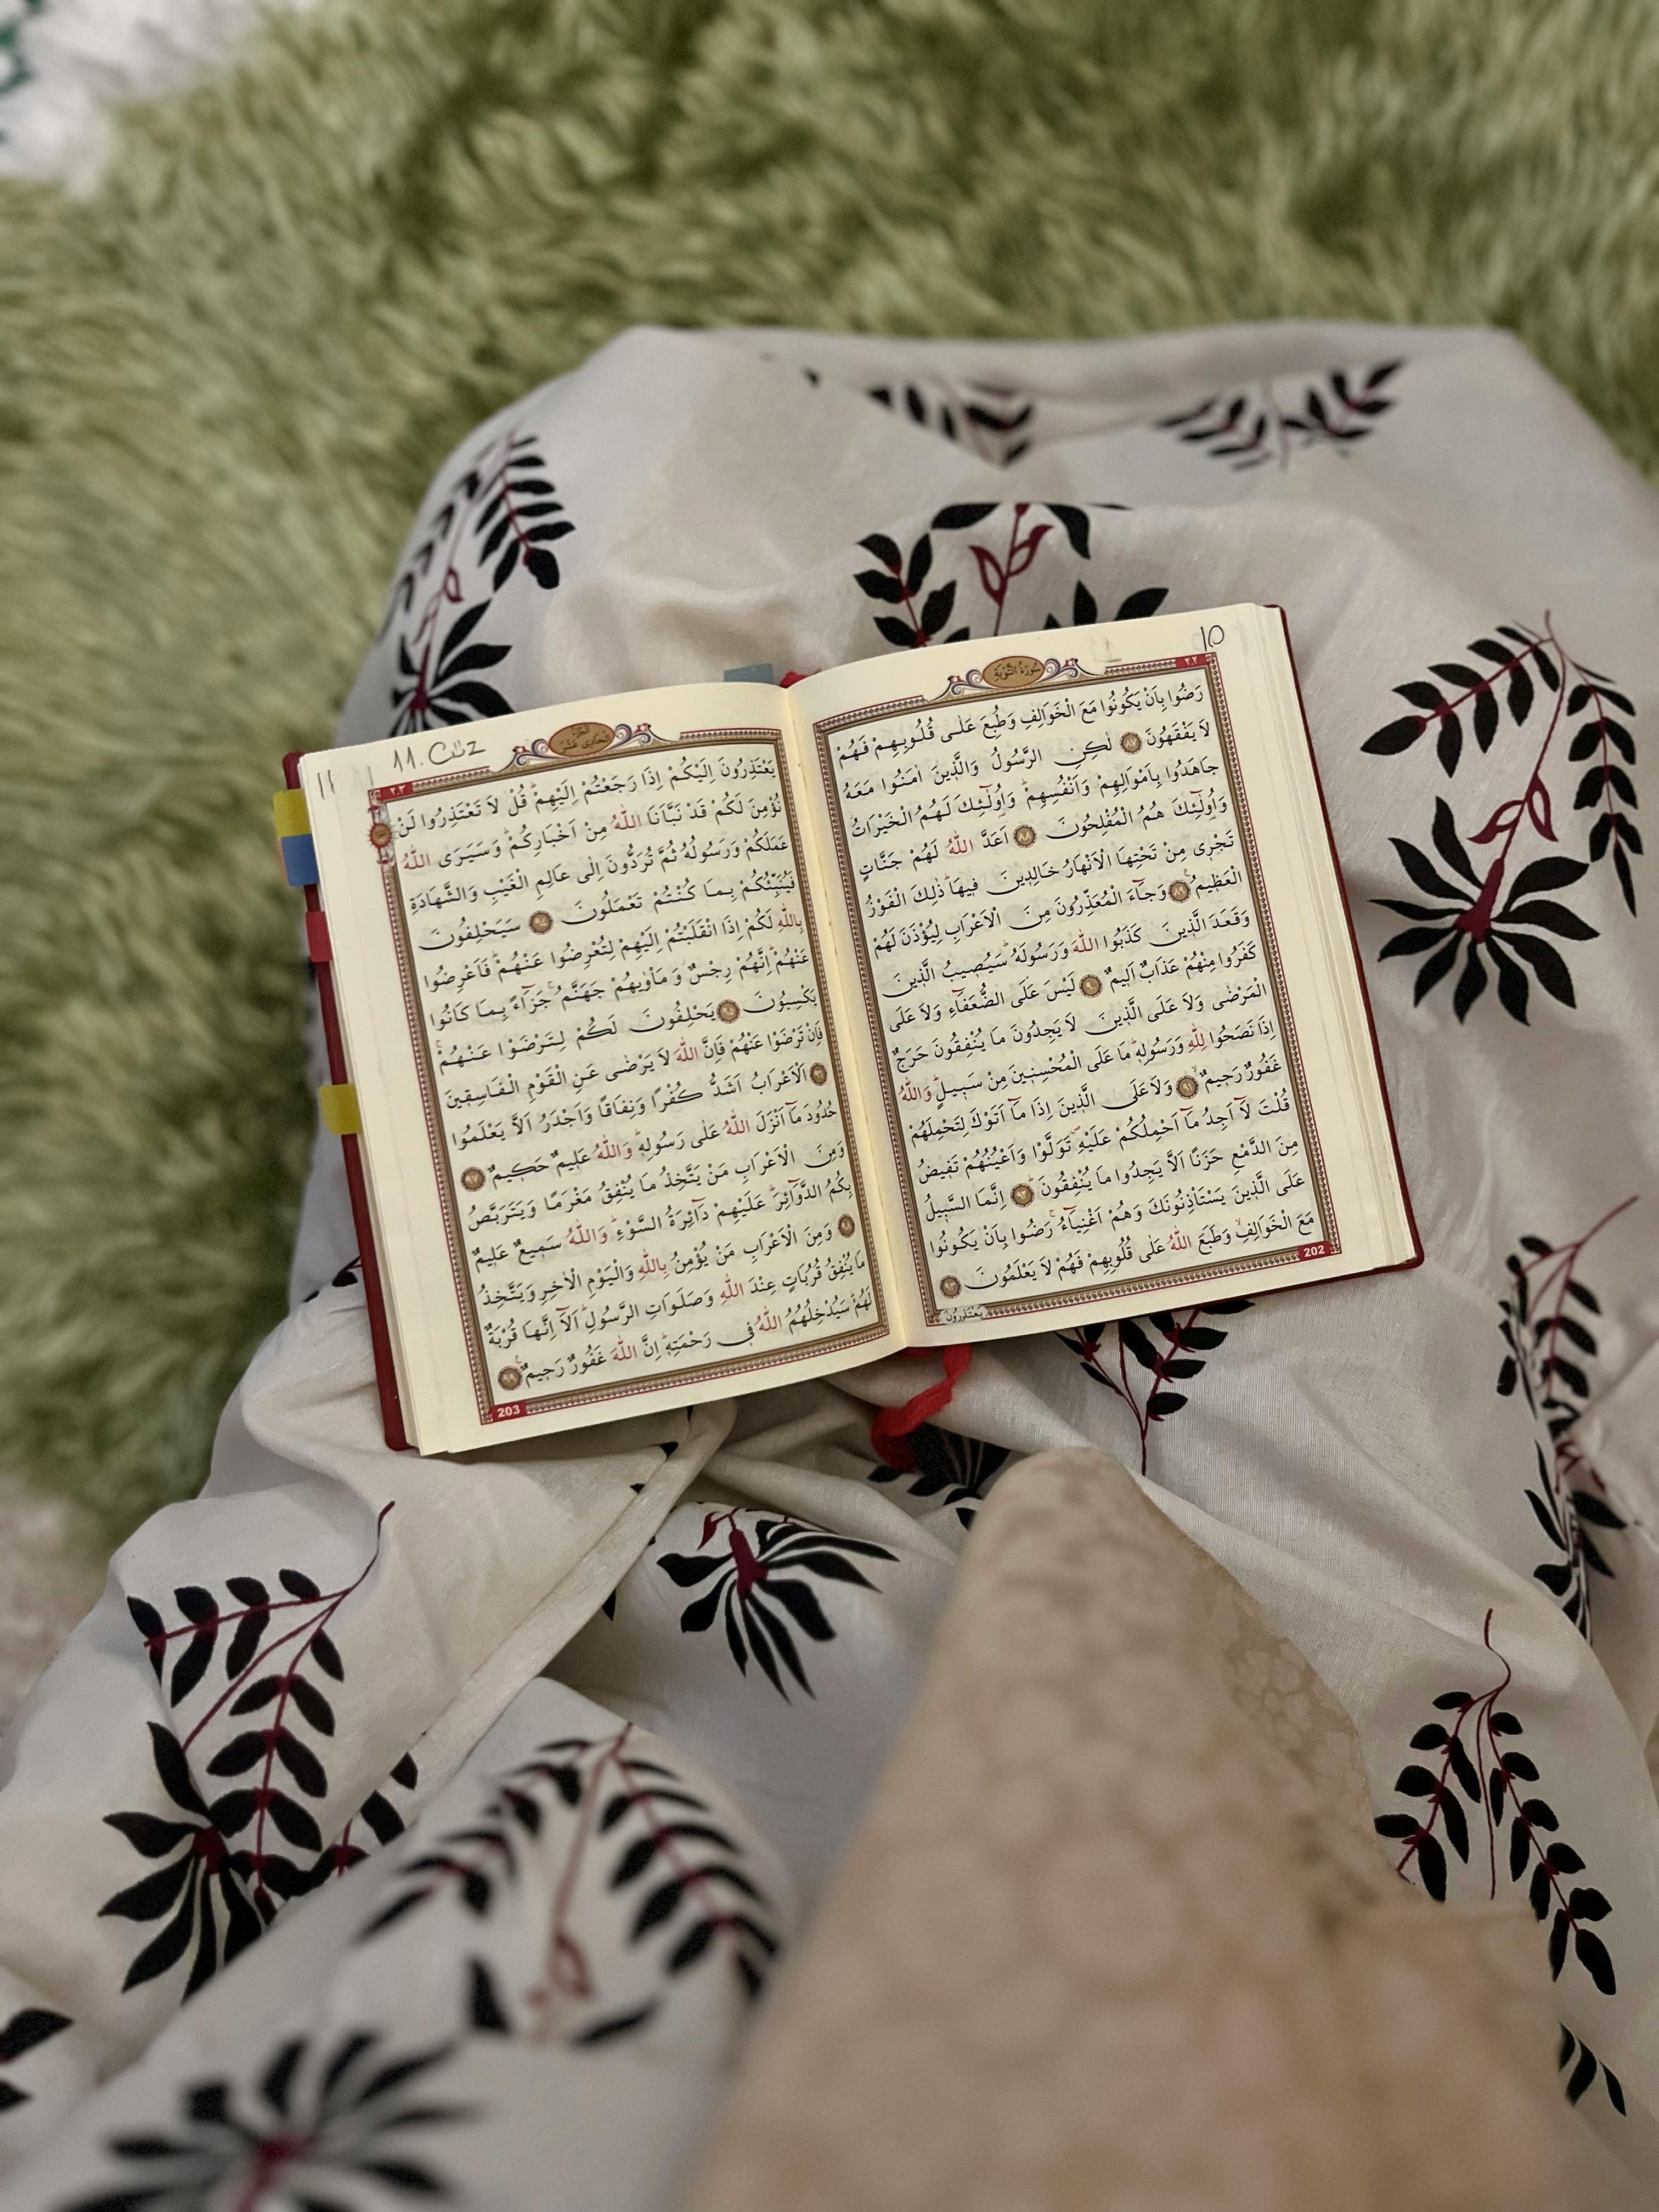 10
سُورَةُ التَّوْبَةِ
٢٠٢
رَضُوا بِاَنْ يَكُونُوا مَعَ الْخَوَالِفِ وَطُبِعَ عَلٰى قُلُوبِهِمْ فَهُمْ
لَا يَفْقَهُونَ ﴿٨٧﴾ لٰكِنِ الرَّسُولُ وَالَّذِينَ اٰمَنُوا مَعَهُ
جَاهَدُوا بِاَمْوَالِهِمْ وَاَنْفُسِهِمْ وَاُولٰٓئِكَ لَهُمُ الْخَيْرَاتُ
وَاُولٰٓئِكَ هُمُ الْمُفْلِحُونَ ﴿٨٨﴾ اَعَدَّ اللّٰهُ لَهُمْ جَنَّاتٍ
تَجْرِى مِنْ تَحْتِهَا الْاَنْهَارُ خَالِدِينَ فِيهَا ذٰلِكَ الْفَوْزُ
الْعَظِيمُ ﴿٨٩﴾ وَجَٓاءَ الْمُعَذِّرُونَ مِنَ الْاَعْرَابِ لِيُؤْذَنَ لَهُمْ
وَقَعَدَ الَّذِينَ كَذَبُوا اللّٰهَ وَرَسُولَهُ سَيُصِيبُ الَّذِينَ
كَفَرُوا مِنْهُمْ عَذَابٌ اَلِيمٌ ﴿٩٠﴾ لَيْسَ عَلَى الضُّعَفَٓاءِ وَلَا عَلَى
الْمَرْضٰى وَلَا عَلَى الَّذِينَ لَا يَجِدُونَ مَا يُنْفِقُونَ حَرَجٌ
اِذَا نَصَحُوا لِلّٰهِ وَرَسُولِهِ مَا عَلَى الْمُحْسِنِينَ مِنْ سَبِيلٍ وَاللّٰهُ
غَفُورٌ رَحِيمٌ ﴿٩١﴾ وَلَا عَلَى الَّذِينَ اِذَا مَٓا اَتَوْكَ لِتَحْمِلَهُمْ
قُلْتَ لَٓا اَجِدُ مَٓا اَحْمِلُكُمْ عَلَيْهِ تَوَلَّوْا وَاَعْيُنُهُمْ تَفِيضُ
مِنَ الدَّمْعِ حَزَنًا اَلَّا يَجِدُوا مَا يُنْفِقُونَ ﴿٩٢﴾ اِنَّمَا السَّبِيلُ
عَلَى الَّذِينَ يَسْتَاْذِنُونَكَ وَهُمْ اَغْنِيَٓاءُ رَضُوا بِاَنْ يَكُونُوا
مَعَ الْخَوَالِفِ وَطَبَعَ اللّٰهُ عَلٰى قُلُوبِهِمْ فَهُمْ لَا يَعْلَمُونَ ﴿٩٣﴾
يَعْتَذِرُونَ
202
11
11. Cüz
الْجُزْءُ الْحَادِى عَشَرَ
٢٠٣
يَعْتَذِرُونَ اِلَيْكُمْ اِذَا رَجَعْتُمْ اِلَيْهِمْ قُلْ لَا تَعْتَذِرُوا لَنْ
نُؤْمِنَ لَكُمْ قَدْ نَبَّاَنَا اللّٰهُ مِنْ اَخْبَارِكُمْ وَسَيَرَى اللّٰهُ
عَمَلَكُمْ وَرَسُولُهُ ثُمَّ تُرَدُّونَ اِلٰى عَالِمِ الْغَيْبِ وَالشَّهَادَةِ
فَيُنَبِّئُكُمْ بِمَا كُنْتُمْ تَعْمَلُونَ ﴿٩٤﴾ سَيَحْلِفُونَ
بِاللّٰهِ لَكُمْ اِذَا انْقَلَبْتُمْ اِلَيْهِمْ لِتُعْرِضُوا عَنْهُمْ فَاَعْرِضُوا
عَنْهُمْ اِنَّهُمْ رِجْسٌ وَمَاْوٰيهُمْ جَهَنَّمُ جَزَٓاءً بِمَا كَانُوا
يَكْسِبُونَ ﴿٩٥﴾ يَحْلِفُونَ لَكُمْ لِتَرْضَوْا عَنْهُمْ
فَاِنْ تَرْضَوْا عَنْهُمْ فَاِنَّ اللّٰهَ لَا يَرْضٰى عَنِ الْقَوْمِ الْفَاسِقِينَ
﴿٩٦﴾ اَلْاَعْرَابُ اَشَدُّ كُفْرًا وَنِفَاقًا وَاَجْدَرُ اَلَّا يَعْلَمُوا
حُدُودَ مَٓا اَنْزَلَ اللّٰهُ عَلٰى رَسُولِهِ وَاللّٰهُ عَلِيمٌ حَكِيمٌ ﴿٩٧﴾
وَمِنَ الْاَعْرَابِ مَنْ يَتَّخِذُ مَا يُنْفِقُ مَغْرَمًا وَيَتَرَبَّصُ
بِكُمُ الدَّوَٓائِرَ عَلَيْهِمْ دَٓائِرَةُ السَّوْءِ وَاللّٰهُ سَمِيعٌ عَلِيمٌ
﴿٩٨﴾ وَمِنَ الْاَعْرَابِ مَنْ يُؤْمِنُ بِاللّٰهِ وَالْيَوْمِ الْاٰخِرِ وَيَتَّخِذُ
مَا يُنْفِقُ قُرُبَاتٍ عِنْدَ اللّٰهِ وَصَلَوَاتِ الرَّسُولِ اَلَٓا اِنَّهَا قُرْبَةٌ
لَهُمْ سَيُدْخِلُهُمُ اللّٰهُ فِى رَحْمَتِهِ اِنَّ اللّٰهَ غَفُورٌ رَحِيمٌ ﴿٩٩﴾
203